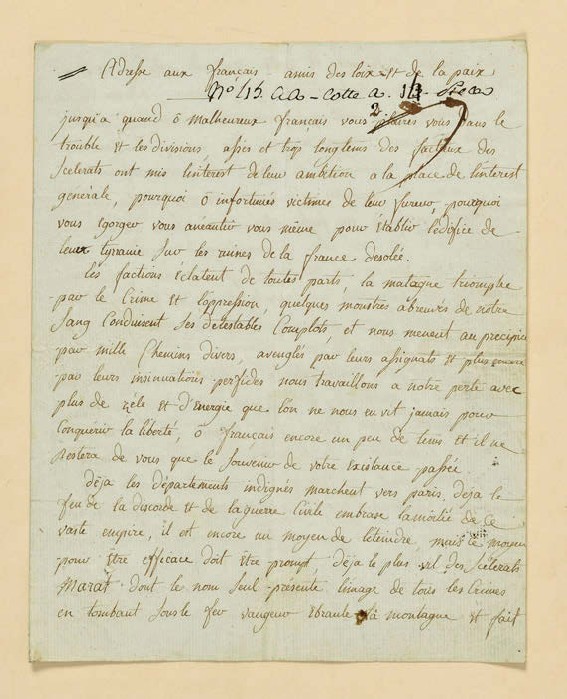 Adresse aux français amis des loix et de la paix
No 15. aa - Cotte a. 1
2
jusqu'a quand ô malheureux français vous plairez vous dans le
trouble et les divisions assés et trop longtems des factieux des
Scelerats ont mis l'interest de leur ambition a la place de l'interest
general, pourquoi ô infortunés victimes de leur fureur, pourquoi
vous egorger vous aneantir vous même pour établir l'édifice de
leur tyranie sur les ruines de la france desolée.
les factions éclatent de toutes parts, la matagne triomphe
par le Crime et l'oppression, quelques monstres abreuvés de notre
Sang Conduisent ses détestables Complots, et nous menent au précipice
par mille Chemins divers, aveuglés par leurs assignats et plus encore
par leurs insinuations perfides nous travaillons a notre perte avec
plus de zéle et d'Energie que l'on ne nous en vit jamais pour
Conquérir la liberté, ô français encore un peu de tems et il ne
Restera de vous que le Souvenir de votre existance passée
déja les départements indignés marchent vers paris, déja le
feu de la discorde et de la guerre civile embrase la moitié de ce
vaste empire, il est encore un moyen de l'éteindre, mais ce moyen
pour être efficace doit être prompt, déja le plus vil des Scélerats
Marat dont le nom seul présente l'image de tous les Crimes
en tombant sous le fer vangeur ebranle la montagne et fait